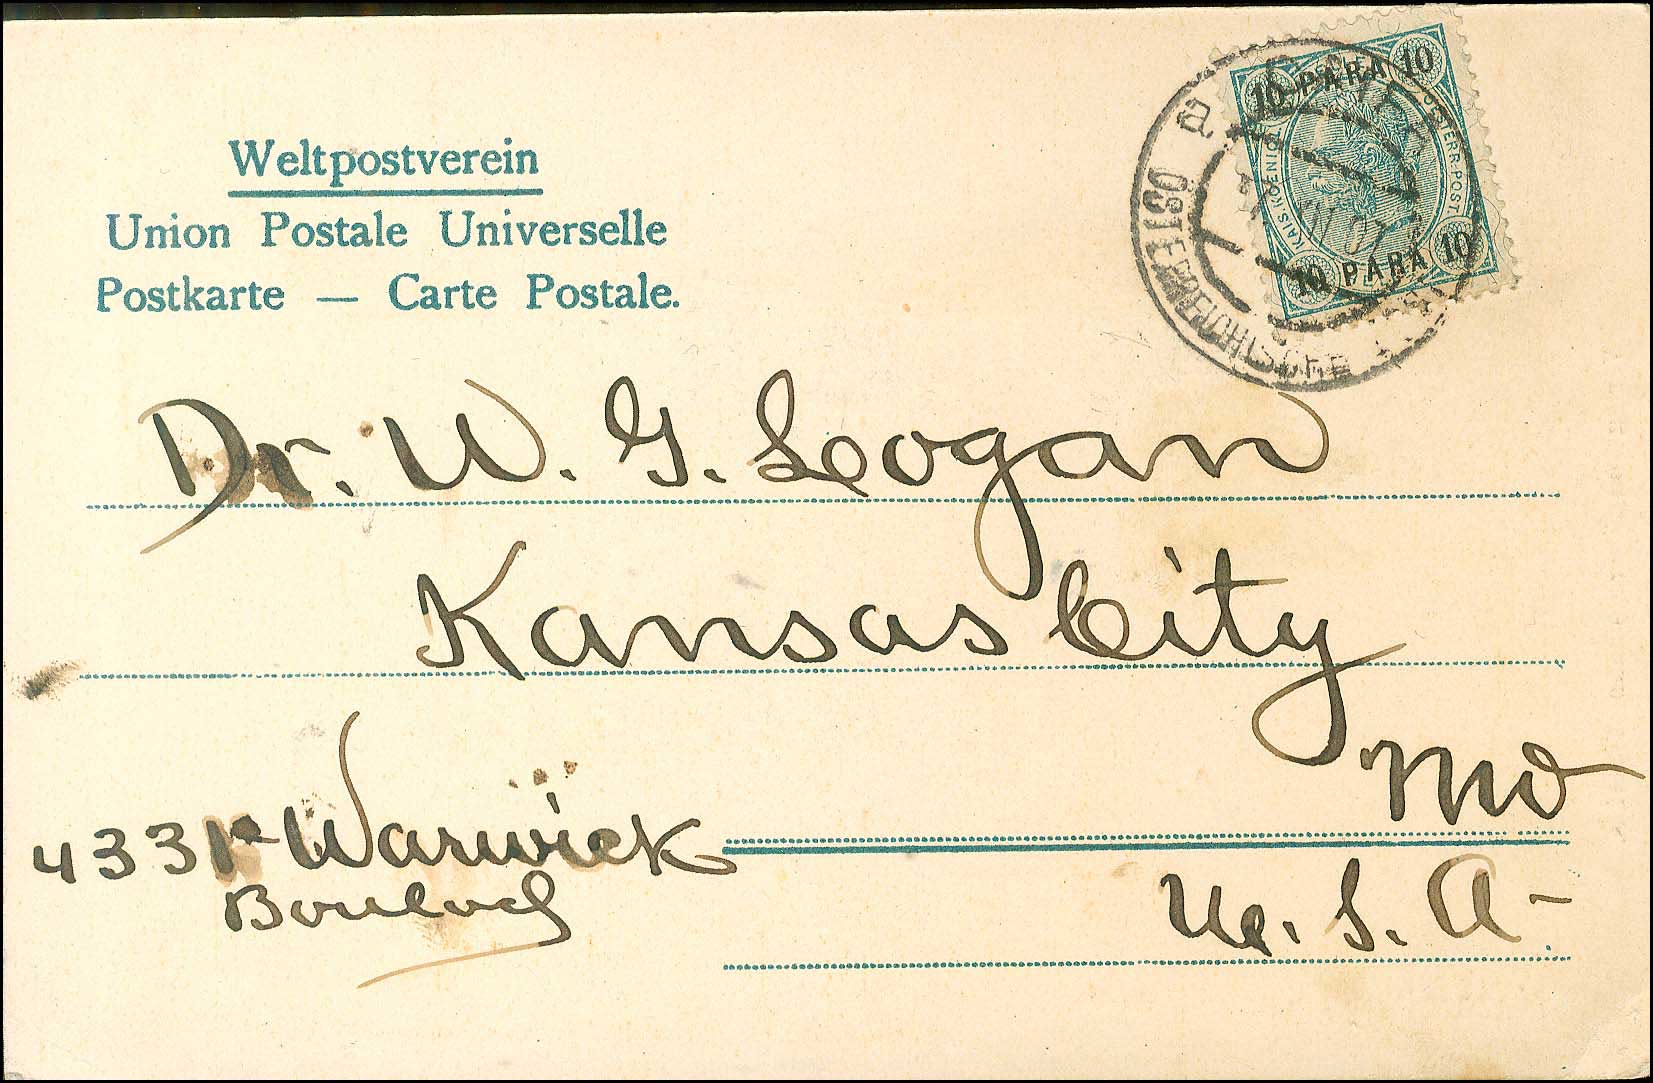 Weltpostverein
Union Postale Universelle
Postkarte — Carte Postale.
10 PARA 10
KAIS. KOENIGL. OESTERR. POST.
10 PARA 10
ÖSTERREICHISCHE
a
Dr. W. G. Logan
Kansas City
Mo
4331 Warwick
U. S. A-